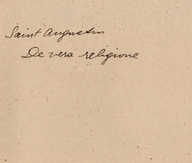 Saint Augustin
De vera religione